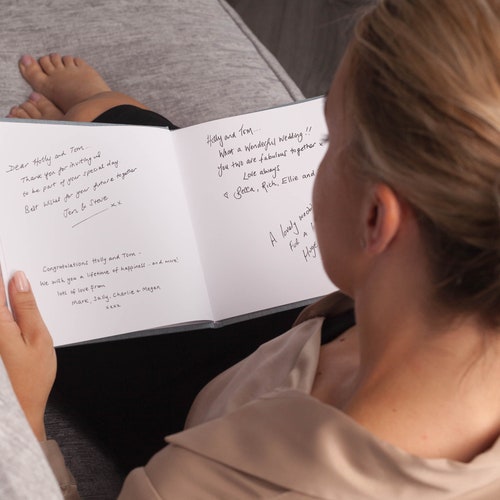 Dear Holly and Tom...
Thank you for inviting us
to be part of your special day
Best wishes for your future together
Jen & Steve xx
Congratulations Holly and Tom -
We wish you a lifetime of happiness.. and more!
lots of love from
Mark, Sally, Charlie + Megan
xxxx
Holly and Tom...
What a Wonderful Wedding!!
you two are fabulous together
Love always
Bella, Rich, Ellie and
A lovely
For a
Huge